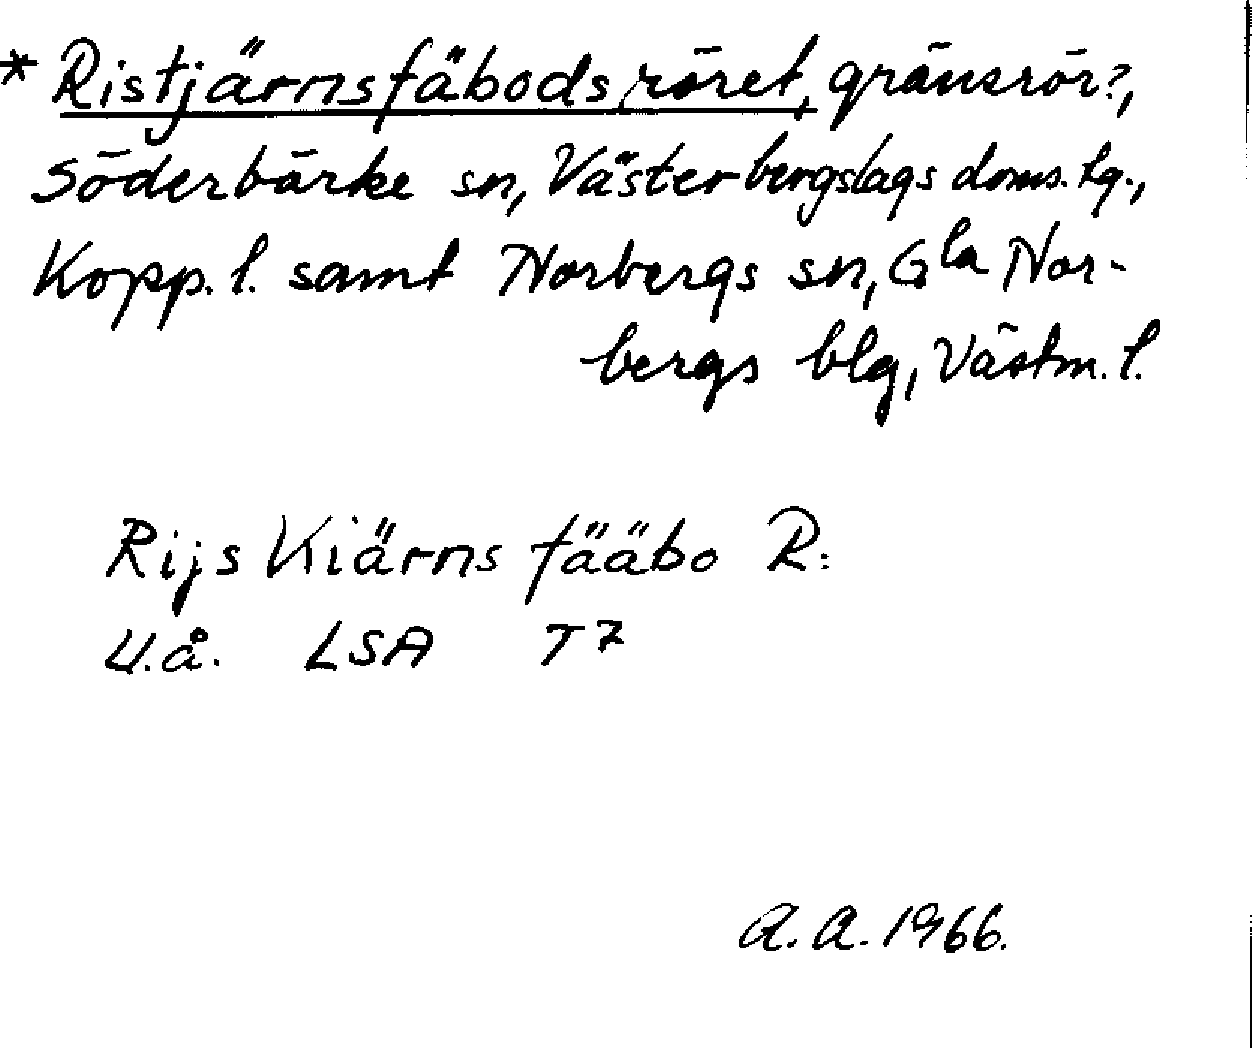 * Ristjärnsfäbodsröret, gränsrör?,
Söderbärke sn, Västerbergslags doms. tg.,
Kopp. l. samt Norbergs sn, Gla Nor-
bergs blg, Västm. l.
Rijs Kiärns fääbo R:
U.å. LSA T7
A.A. 1966.